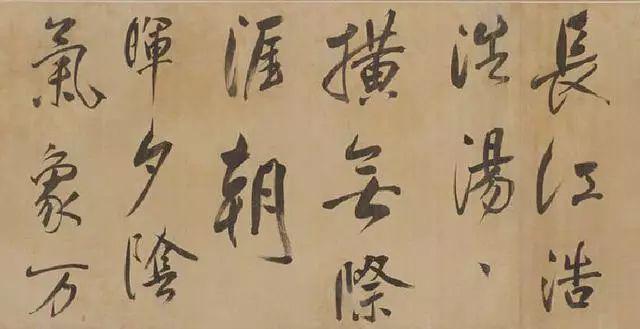 長江浩
浩湯、
横無際
涯朝
暉夕陰
氣象万